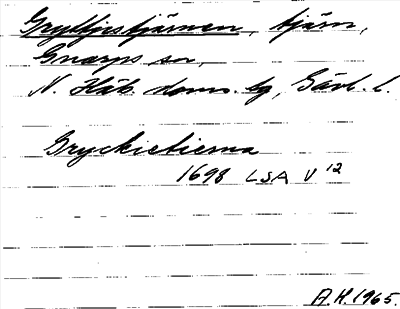 Gryttjestjärnen, tjärn,
Gnarps sn,
N. Häls. doms. bg, Gävl. l.
Gryckietierna
1698 LSA V 12
A.H. 1965.